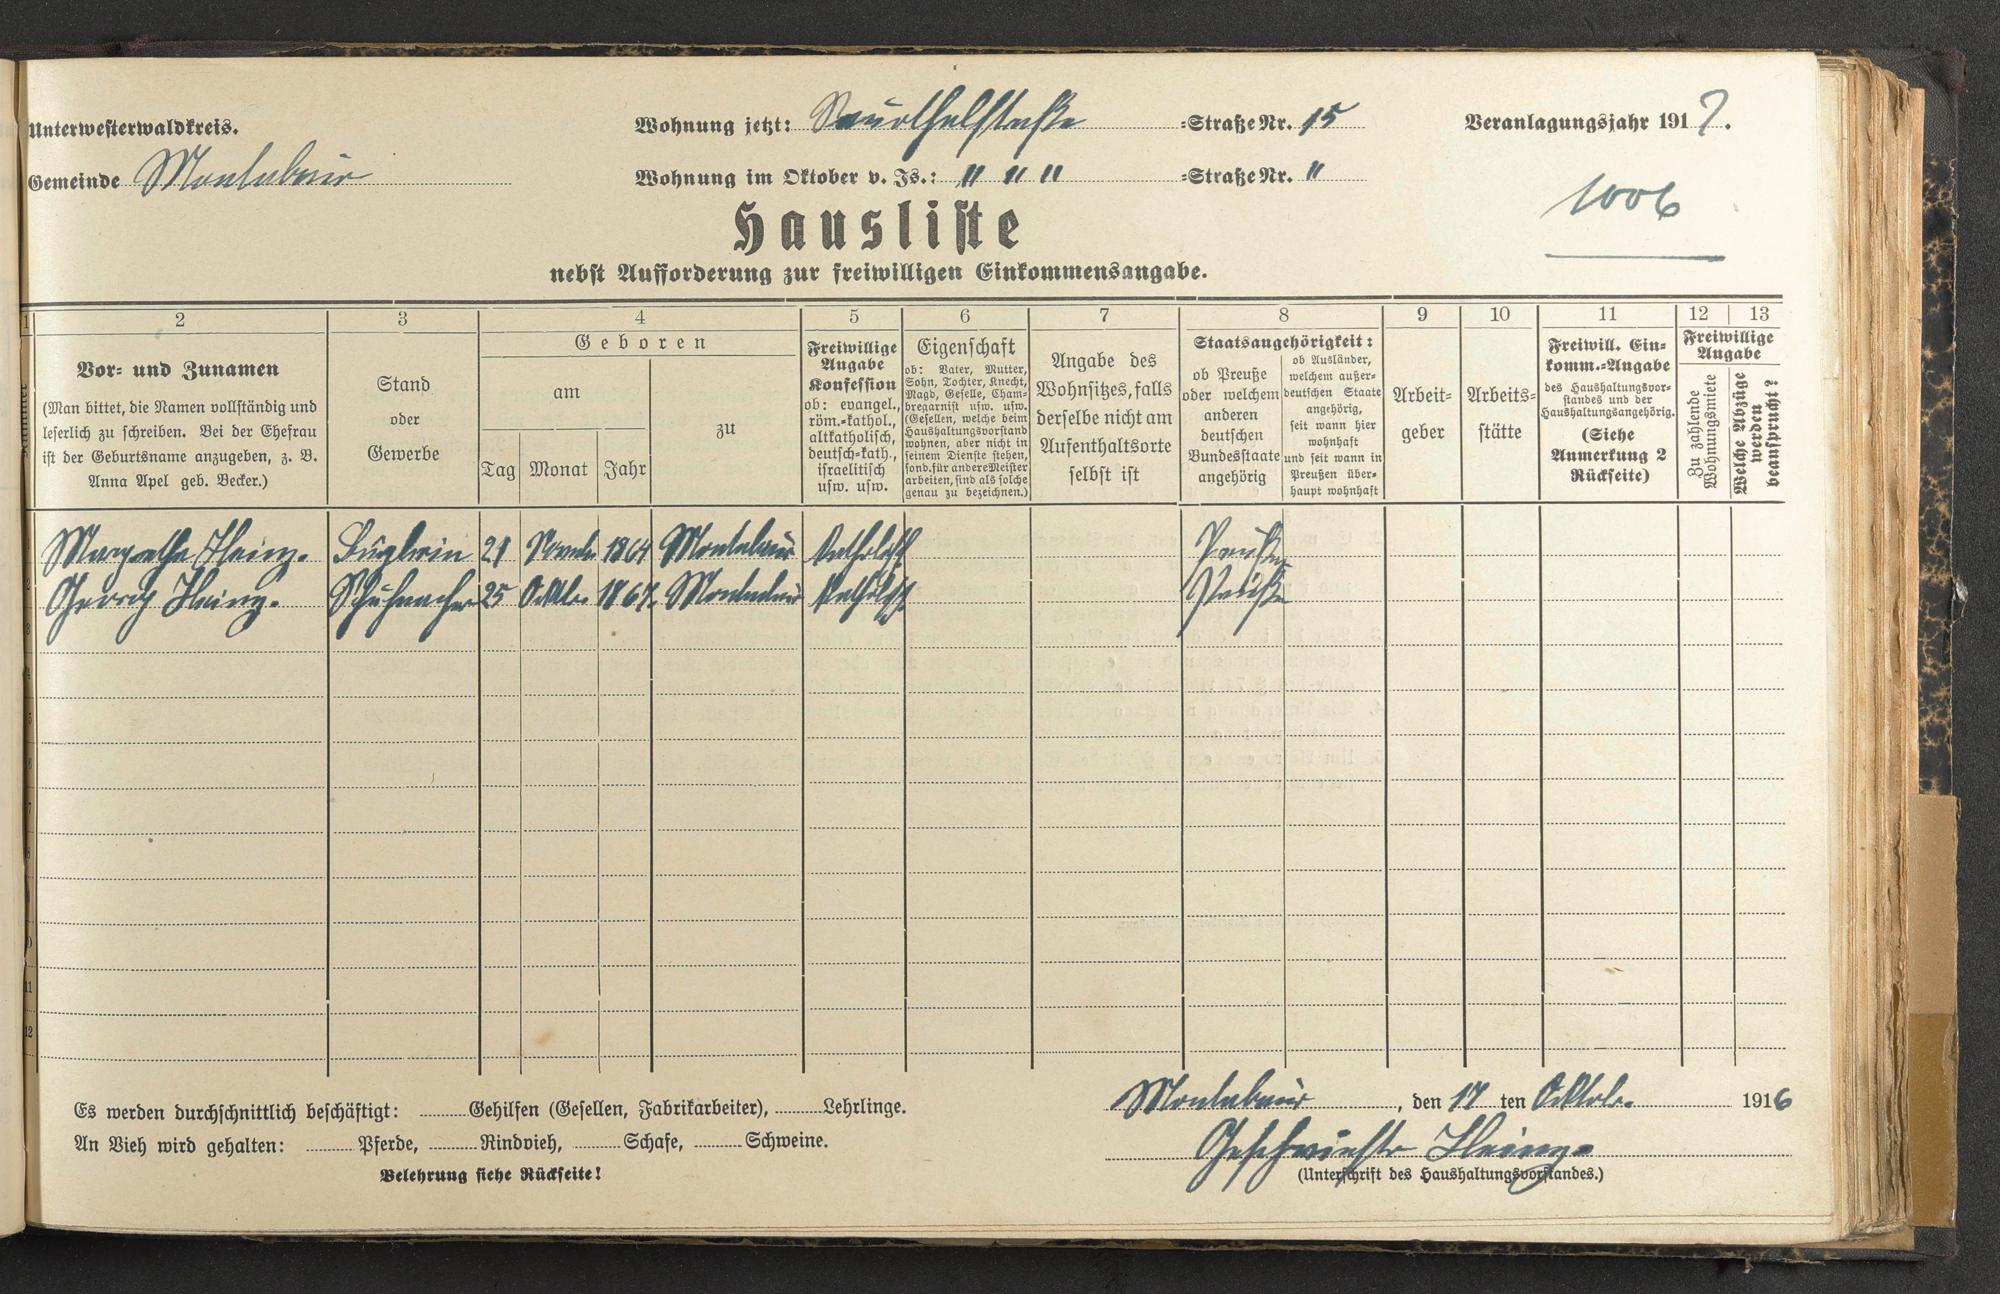 Unterwesterwaldkreis.
Wohnung jetzt: Sauerthalstraße =Straße Nr. 15
Veranlagungsjahr 1917.
Gemeinde Montabaur
Wohnung im Oktober v. Js.: " " " =Straße Nr. "
1006
Hausliste
nebst Aufforderung zur freiwilligen Einkommensangabe.
1 2 3 4 5 6 7 8 9 10 11 12 13
Nummer
Vor= und Zunamen
(Man bittet, die Namen vollständig und
leserlich zu schreiben. Bei der Ehefrau
ist der Geburtsname anzugeben, z. B.
Anna Apel geb. Becker.)
Stand
oder
Gewerbe
Geboren
am
Tag Monat Jahr
zu
Freiwillige
Angabe
Konfession
ob: evangel.,
röm.=kathol.,
altkatholisch,
deutsch=kath.,
israelitisch
usw. usw.
Eigenschaft
ob: Vater, Mutter,
Sohn, Tochter, Knecht,
Magd, Geselle, Cham=
bregarnist usw. usw.
(Gesellen, welche beim
Haushaltungsvorstand
wohnen, aber nicht in
seinem Dienste stehen,
sond. für andere Meister
arbeiten, sind als solche
genau zu bezeichnen.)
Angabe des
Wohnsitzes, falls
derselbe nicht am
Aufenthaltsorte
selbst ist
Staatsangehörigkeit:
ob Preuße
oder welchem
anderen
deutschen
Bundesstaate
angehörig
ob Ausländer,
welchem außer=
deutschen Staate
angehörig,
seit wann hier
wohnhaft
und seit wann in
Preußen über=
haupt wohnhaft
Arbeit=
geber
Arbeits=
stätte
Freiwill. Ein=
komm.=Angabe
des Haushaltungsvor=
standes und der
Haushaltungsangehörig.
(Siehe
Anmerkung 2
Rückseite)
Freiwillige
Angabe
Zu zahlende
Wohnungsmiete
Welche Abzüge
werden
beansprucht?
Margrethe Heinz. Büglerin 21 Novemb 1864 Montabaur Katholisch Preuße
Georg Heinz. Schuhmacher 25 Oktbr. 1867. Montabaur Katholisch Preuße
3
4
5
6
7
8
9
10
11
12
Es werden durchschnittlich beschäftigt: Gehilfen (Gesellen, Fabrikarbeiter), Lehrlinge.
An Vieh wird gehalten: Pferde, Rindvieh, Schafe, Schweine.
Belehrung siehe Rückseite!
Montabaur, den 17 ten Oktob. 1916
Geschwister Heinz.
(Unterschrift des Haushaltungsvorstandes.)